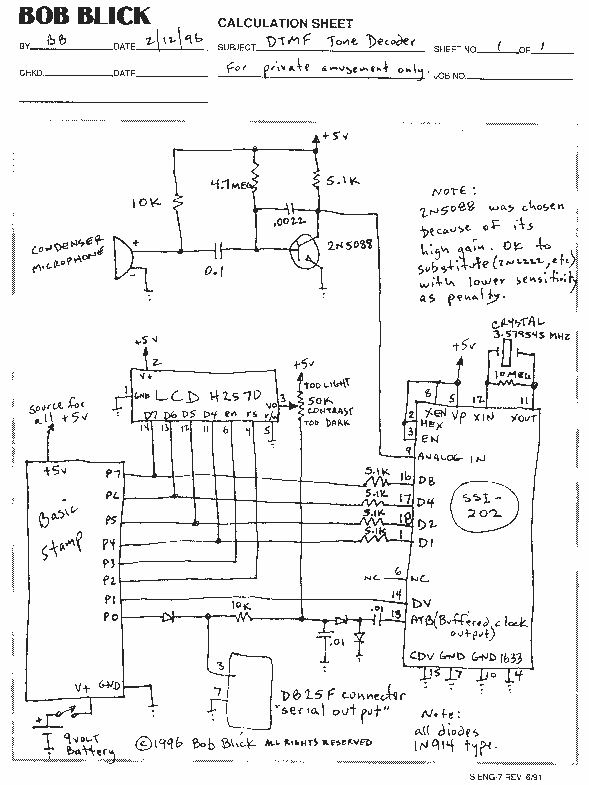 BOB BLICK
CALCULATION SHEET
BY BB DATE 2/12/96 SUBJECT DTMF Tone Decoder SHEET NO. 1 OF 1
CHKD. DATE For private amusement only. JOB NO.
+5v
10K
4.7MEG
5.1K
.0022
2N5088
CONDENSER
MICROPHONE
+
0.1
NOTE:
2N5088 was chosen
because of its
high gain. OK to
substitute (2N2222, etc)
with lower sensitivity
as penalty.
CRYSTAL
3.579545 MHZ
10 MEG
+5v
+5v
2
V+
1
GND
LCD H2570
Vo
3
D7 D6 D5 D4 en rs r/w
14 13 12 11 6 4 5
+5v
TOO LIGHT
50K
CONTRAST
TOO DARK
8 5 12 11
XEN VP XIN XOUT
2
HEX
3
EN
9
ANALOG IN
source for
all +5v
+5v
Basic
Stamp
P7
P6
P5
P4
P3
P2
P1
P0
5.1K
16
D8
5.1K
17
D4
5.1K
18
D2
5.1K
1
D1
SSI-
202
NC
6
NC
14
DV
10K
.01
.01
13
ATB (Buffered clock
output)
CDV GND GND 1633
15 7 10 4
3
7
DB25F connector
"serial output"
V+
GND
+
9VOLT
Battery
©1996 Bob Blick ALL RIGHTS RESERVED
Note:
all diodes
1N914 type.
S ENG-7 REV. 6/91